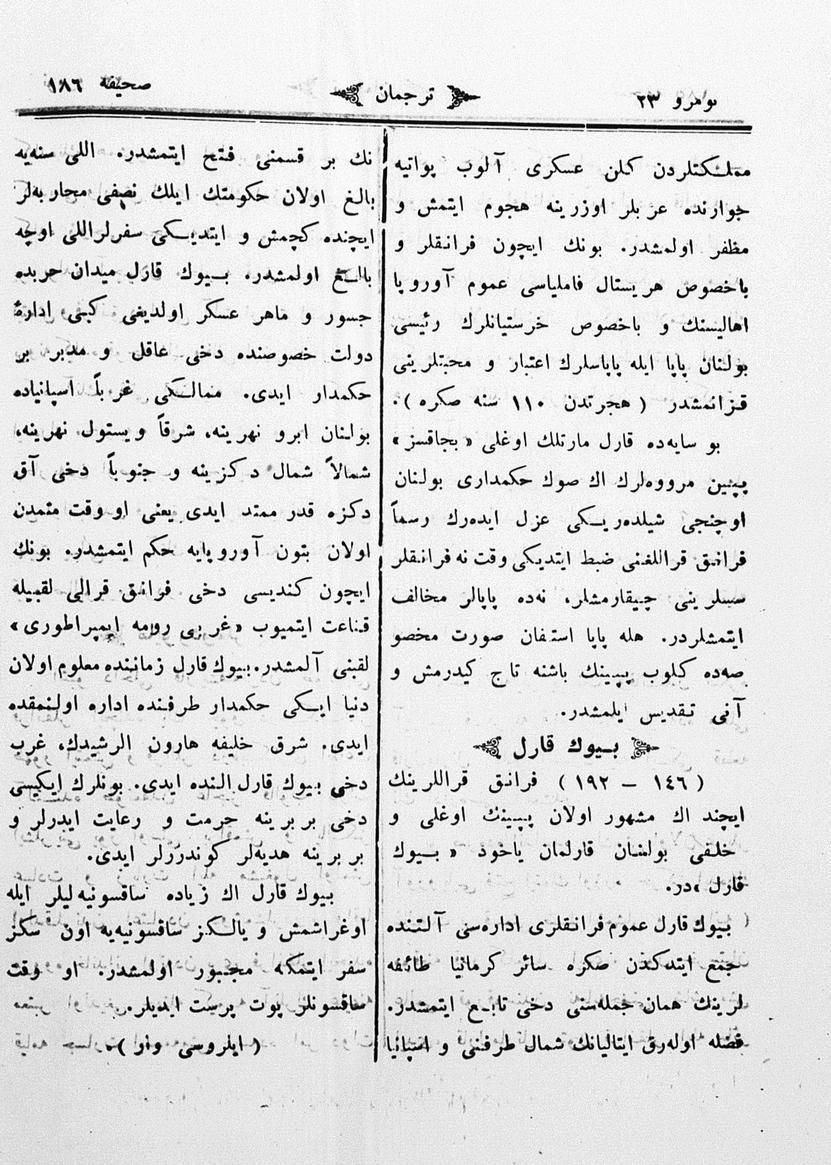 نومرو ٢٣
ترجمان
صحيفه ١٨٦
مملكتلردن كلن عسكرى آلوب پواتيه
جوارنده عربلر اوزرينه هجوم ايتمش و
مظفر اولمشدر. بونك ايچون فرانقلر و
باخصوص هريستال فاملياسى عموم آوروپا
اهاليسنك و باخصوص خرستيانلرك رئيسى
بولنان پاپا ايله پاپاسلرك اعتبار و محبتلرينى
قزانمشدر ( هجرتدن ١١٠ سنه صكره ).
بو سايه‌ده قارل مارتلك اوغلى « بجاقسز »
پپين مرووه‌لرك اك صوك حكمدارى بولنان
اوچنجى شيلده‌ريكى عزل ايده‌رك رسماً
فرانق قراللغنى ضبط ايتديكى وقت نه فرانقلر
سسلرينى چيقارمشلر، نه‌ده پاپالر مخالف
ايتمشلردر. هله پاپا استفان صورت مخصو
صه‌ده كلوب پپينك باشنه تاج كيدرمش و
آنى تقديس ايلمشدر.
بيوك قارل
( ١٤٦ – ١٩٢ ) فرانق قراللرينك
ايچند اك مشهور اولان پپينك اوغلى و
خلفى بولنان قارلمان ياخود « بيوك
قارل »در.
بيوك قارل عموم فرانقلرى اداره‌سى آلتنده
جمع ايتدكدن صكره سائر كرمانيا طائفه
لرينك همان جمله‌سنى دخى تابع ايتمشدر.
فضله اوله‌رق ايتاليانك شمال طرفنى و اسپانيا
نك بر قسمنى فتح ايتمشدر. اللى سنه‌يه
بالغ اولان حكومتك ايلك نصفى محاربه‌لر
ايچنده كچمش و ايتديكى سفرلر اللى اوچه
بالغ اولمشدر. بيوك قارل ميدان حربده
جسور و ماهر عسكر اولديغى كبى ادارۀ
دولت خصوصنده دخى عاقل و مدبر بر
حكمدار ايدى. ممالكى غرباً اسپانياده
بولنان ابرو نهرينه، شرقاً ويستول نهرينه،
شمالاً شمال دكزينه و جنوباً دخى آق
دكزه قدر ممتد ايدى يعنى او وقت متمدن
اولان بتون آوروپايه حكم ايتمشدر. بونك
ايچون كنديسى دخى فرانق قرالى لقبيله
قناعت ايتميوب « غربى رومه ايمپراطورى »
لقبنى آلمشدر. بيوك قارل زماننده معلوم اولان
دنيا ايكى حكمدار طرفنده اداره اولنمقده
ايدى. شرق خليفه هارون الرشيدك، غرب
دخى بيوك قارل النده ايدى. بونلرك ايكيسى
دخى بربرينه حرمت و رعايت ايدرلر و
بربرينه هديه‌لر كوندررلر ايدى.
بيوك قارل اك زياده ساقسونيه‌ليلر ايله
اوغراشمش و يالكز ساقسونيه‌يه اون سكز
سفر ايتمكه مجبور اولمشدر. او وقت
ساقسونلر پوت پرست ايديلر.
( ايلروسى وار ).